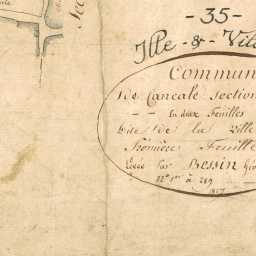 -35-
Ille-&-Vil
Commun
de Cancale Section
En deux Feuilles
Dite de la Ville
Première Feuille
Levée Par Bessin Géo
N.º 1er à 289